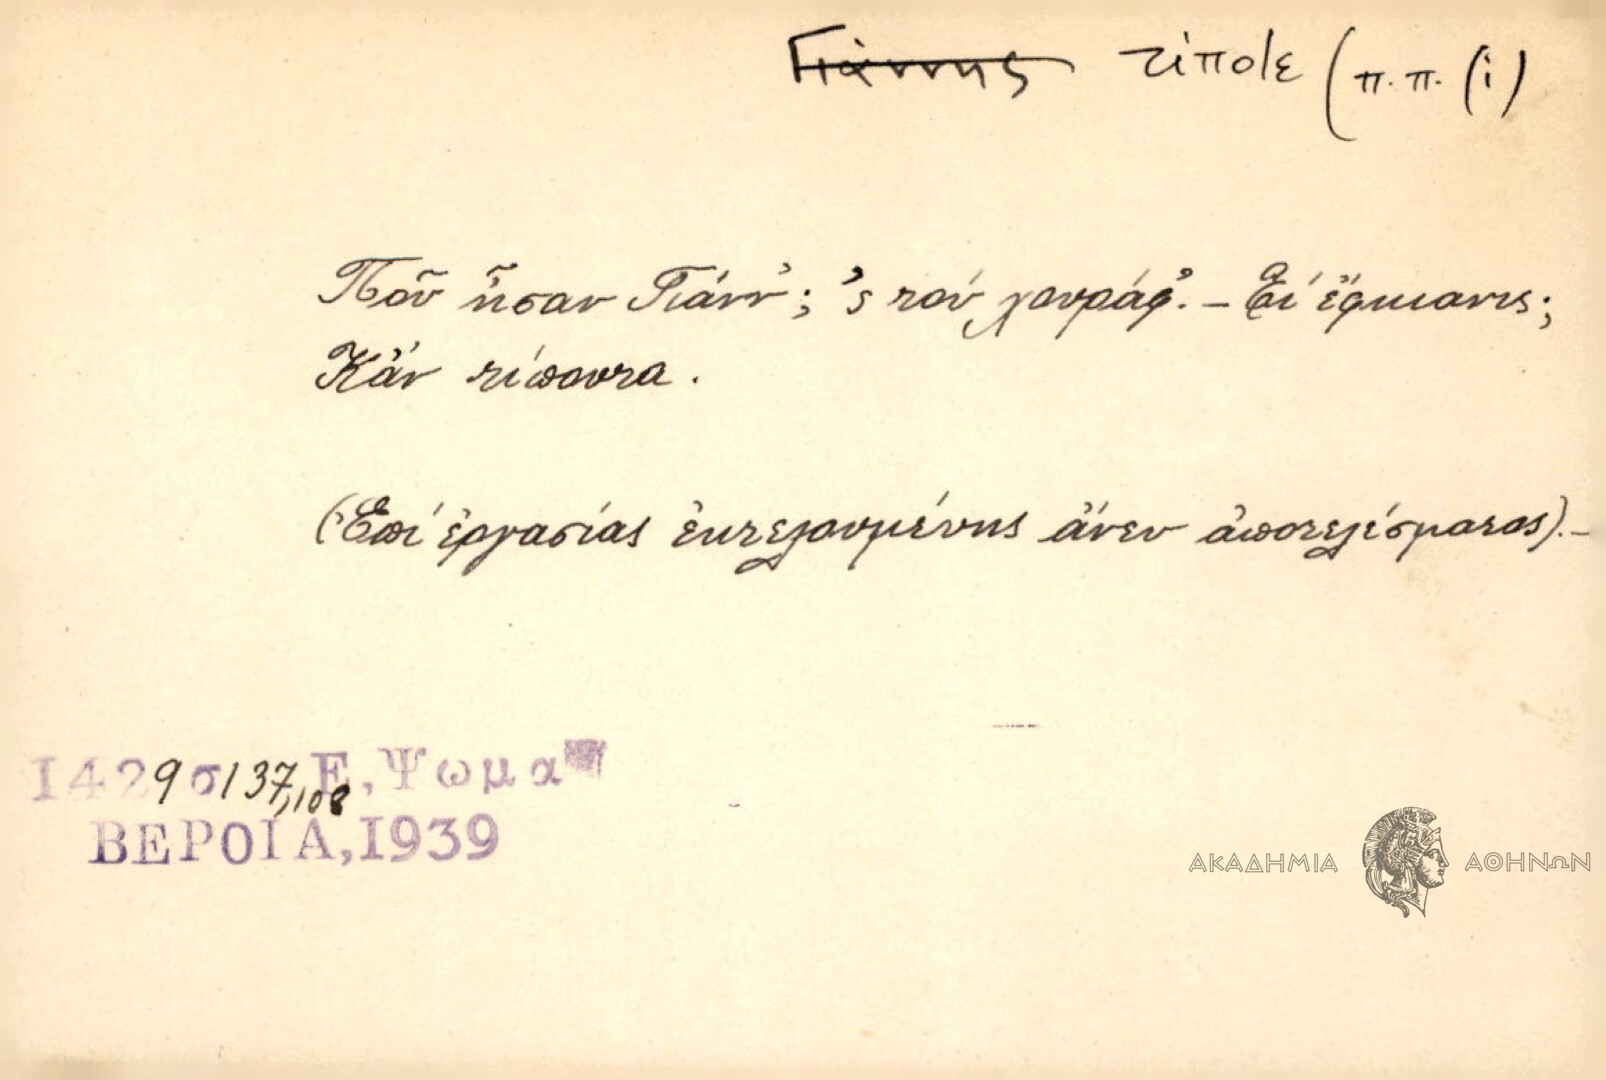 Γιάννης τίποτε (π.π. (i)
Ποῦ ἦσαν Γιάνν'; 'ς τοὺ χουράφ'. – Τί ἔφκιανις;
Κἄν τίπουτα.
(Ἐπί ἐργασίας ἐκτελουμένης ἄνευ ἀποτελέσματος).–
1429 σ 137,108 Ε, Ψωμα
ΒΕΡΟΙΑ,1939
ΑΚΑΔΗΜΙΑ ΑΘΗΝΩΝ